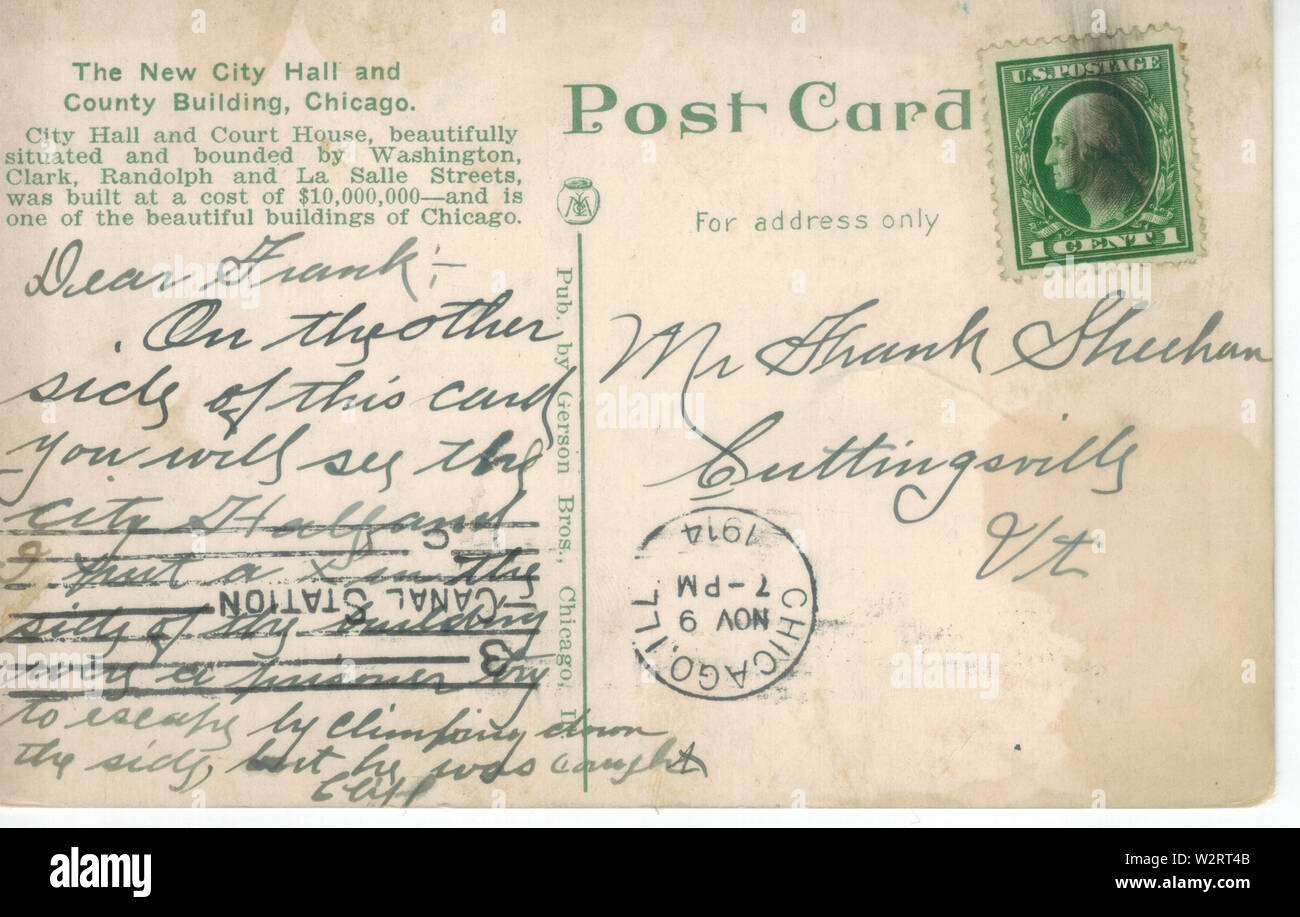 The New City Hall and
County Building, Chicago.
City Hall and Court House, beautifully
situated and bounded by Washington,
Clark, Randolph and La Salle Streets,
was built at a cost of $10,000,000—and is
one of the beautiful buildings of Chicago.
Dear Frank:-
On the other
side of this card
you will see the
city Hall and
I put a x on the
side of the building
were a prisoner try
to escape by climping down
the side, but he was caught
Cliff
C
CANAL STATION
3
Pub. by Gerson Bros., Chicago, Ill.
Post Card
For address only
U.S. POSTAGE
1 CENT 1
Mr Frank Sheehan
Cuttingsville
Vt
CHICAGO, ILL
NOV 9
7-PM
1914
alamy
alamy
Image ID: W2RT4B
www.alamy.com